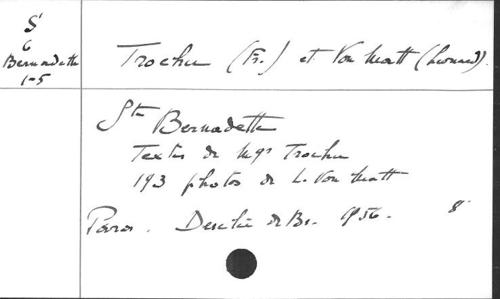 S
6
Bernadette
1-5
Trochu (Fr.) et Von Matt (Leonard).
Ste Bernadette
Textes de Mgr Trochu
193 photos de L. Von Matt
Paris. Desclée de Br. 1956. 8°